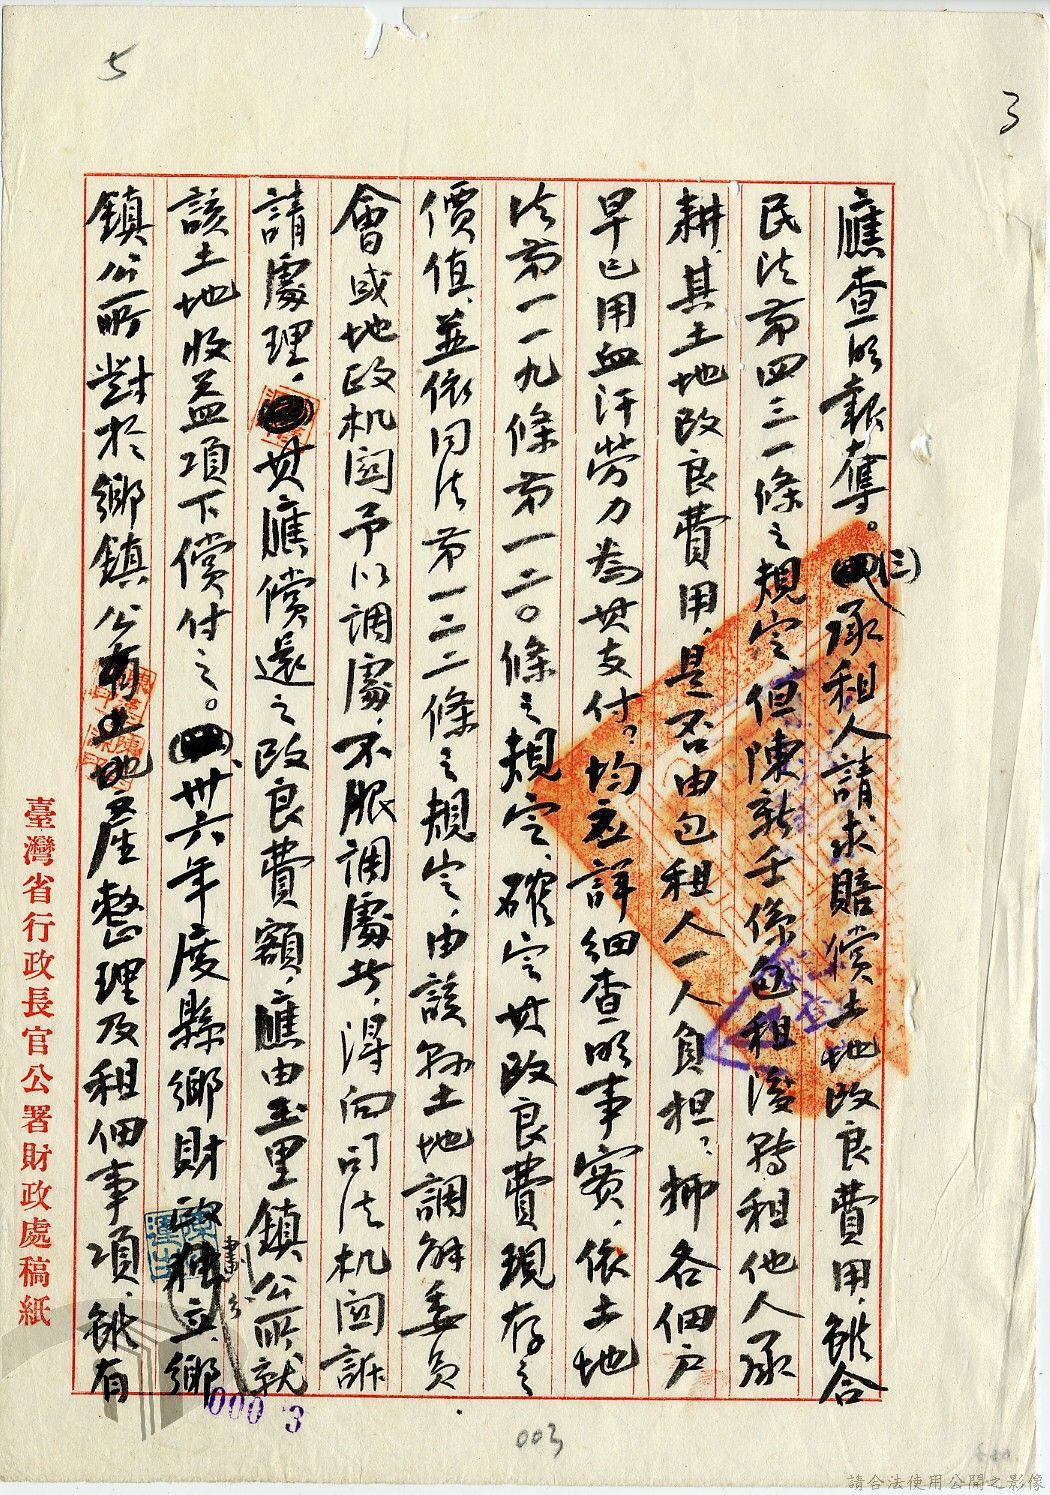 5
3
應查明報奪。(三)承租人請求賠償土地改良費用,雖合
民法第四三一條之規定,但陳新壬係包租後轉租他人承
耕,其土地改良費用,是否由包租人一人負担,抑各佃戶
早已用血汗勞力為其支付。均應詳細查明事實,依土地
法第一一九條第一二〇條之規定,確定其改良費現存之
價值,並依同法第一二二條之規定,由該縣土地調解委員
會或地政机関予以調處,不服調處者,得向司法机関訴
請處理,其應償還之改良費額,應由玉里鎮公所就
該土地收益項下償付之。卅六年度縣鄉財政劃分,鄉
鎮公所對於鄉鎮公有地產整理及租佃事項,雖有
臺灣省行政長官公署財政處稿紙
000 3
003
請合法使用公開之影像